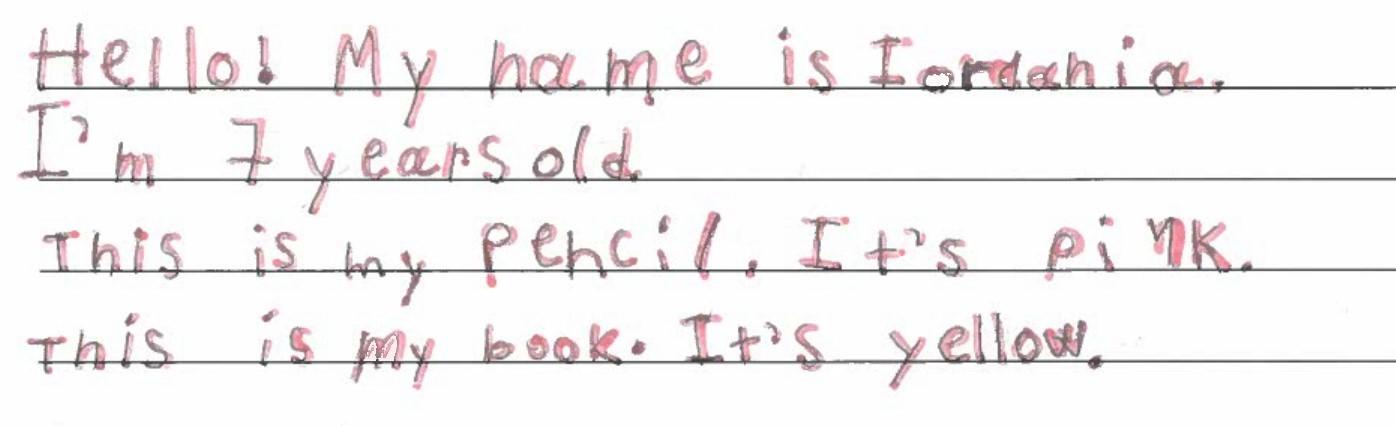 Hello! My name is Iordania.
I'm 7 years old
This is my pencil. It's pink.
This is my book. It's yellow.